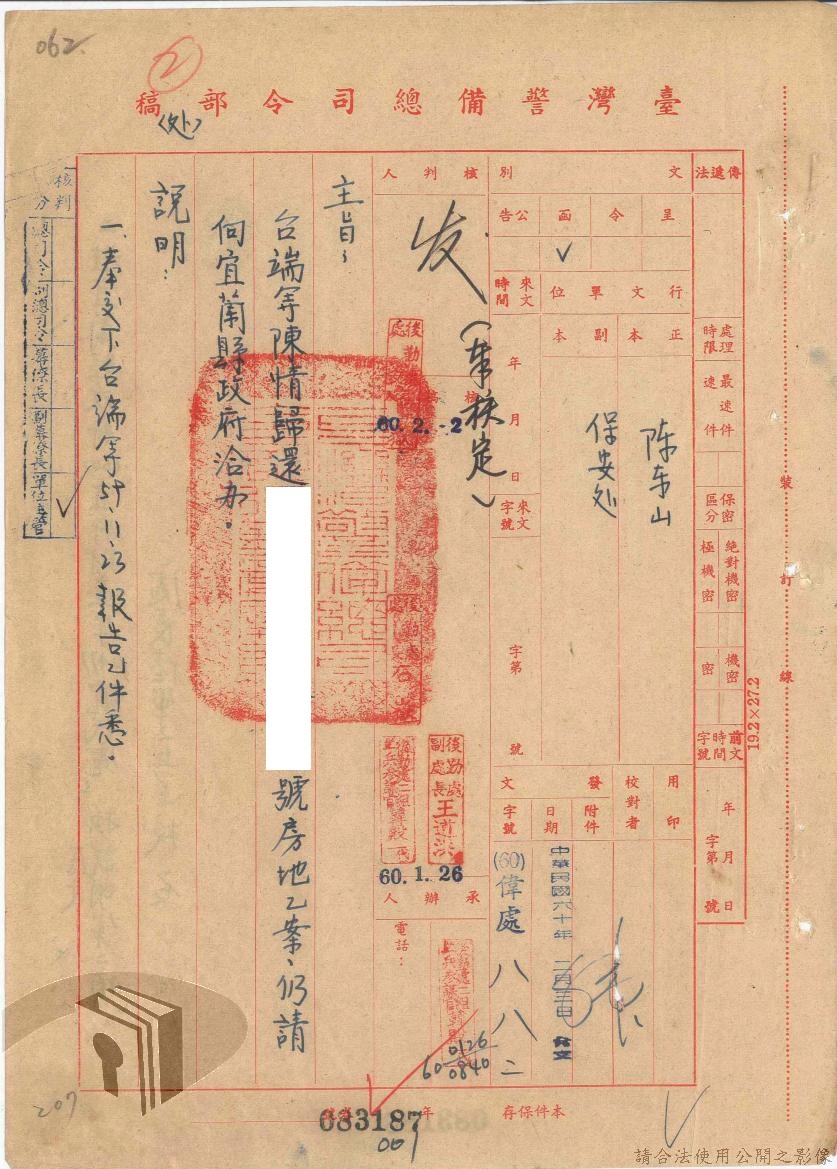 062
②
臺灣警備總司令部
稿
〈处〉
傳遞法
處理時限
最速件
速件
保密區分
絕對機密
極機密
機密
密
前文時間字號
年月日
字第號
文別
呈
令
函
公告
✓
行文單位
正本
副本
陈东山
保安处
來文時間
年月日
來文字號
字第
號
用印
校對者
發文
附件
日期
字號
中華民國六十年二月三日發文
(60)偉處
八八二
核判人
发(奉核定)
60.2.-2
後勤處
後勤處副處長王道洪
60.1.26
承辦人
電話:
60 0126/0840
主旨:
台端等陳情歸還
號房地乙案,仍請
向宜蘭縣政府洽办。
説明:
一、奉交下台端等59.11.23報告乙件悉。
核判
區分
總司令
副總司令
幕僚長
副幕僚長
單位主管
✓
裝
訂
線
19.2×27.2
本件保存
年
083187
007
207
請合法使用公開之影像